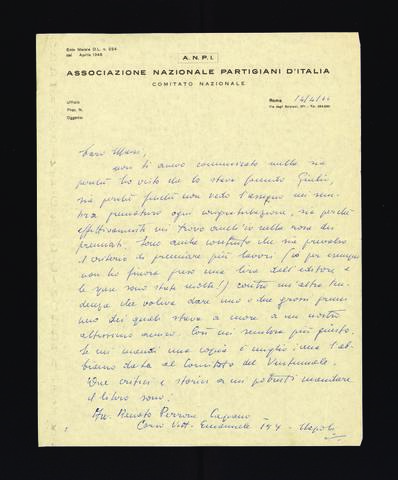 Ente Morale D.L. n. 224
del Aprile 1945
A.N.P.I.
ASSOCIAZIONE NAZIONALE PARTIGIANI D'ITALIA
COMITATO NAZIONALE
Ufficio
Prot. N.
Oggetto:
Roma
Via degli Scipioni, 271 - Tel.
Caro
non ti avevo comunicato nulla sia
perché ho visto che lo stava facendo Giulio,
sia perché finché non vedo l'assegno mi sem-
bra prematura ogni congratulazione, sia perché
effettivamente mi trovo anch'io nella rosa dei
premiati. Sono anche contento che sia prevalso
il criterio di premiare più lavori (io per esempio
non ho finora preso una lira dall'editore e
le spese sono state molte!) contro un'altra ten-
denza che voleva dare uno o due grossi premi
uno dei quali stava a cuore a un nostro
altissimo amico. Così mi sembra più giusto.
Se mi mandi una copia è meglio: una l'ab-
biamo data al Comitato del Ventennale.
Due critici e storici a cui potresti mandare
il libro sono:
Avv. Renato Perrone Capano
Corso Vitt. Emanuele 154 - Napoli